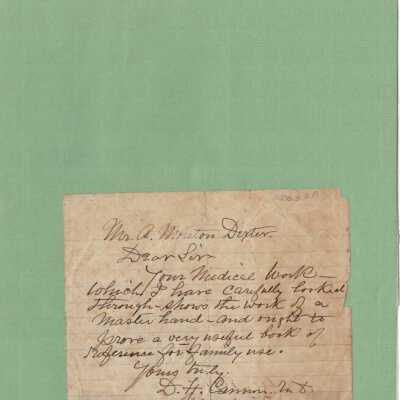 Mr. A. Moreton Dexter.
Dear Sir
Your Medical Work —
Which I have carefully looked
through — shows the work of a
Master hand — and ought to
prove a very useful book of
Reference for Family use.
Yours truly.
D. H. Cannon. M.D.